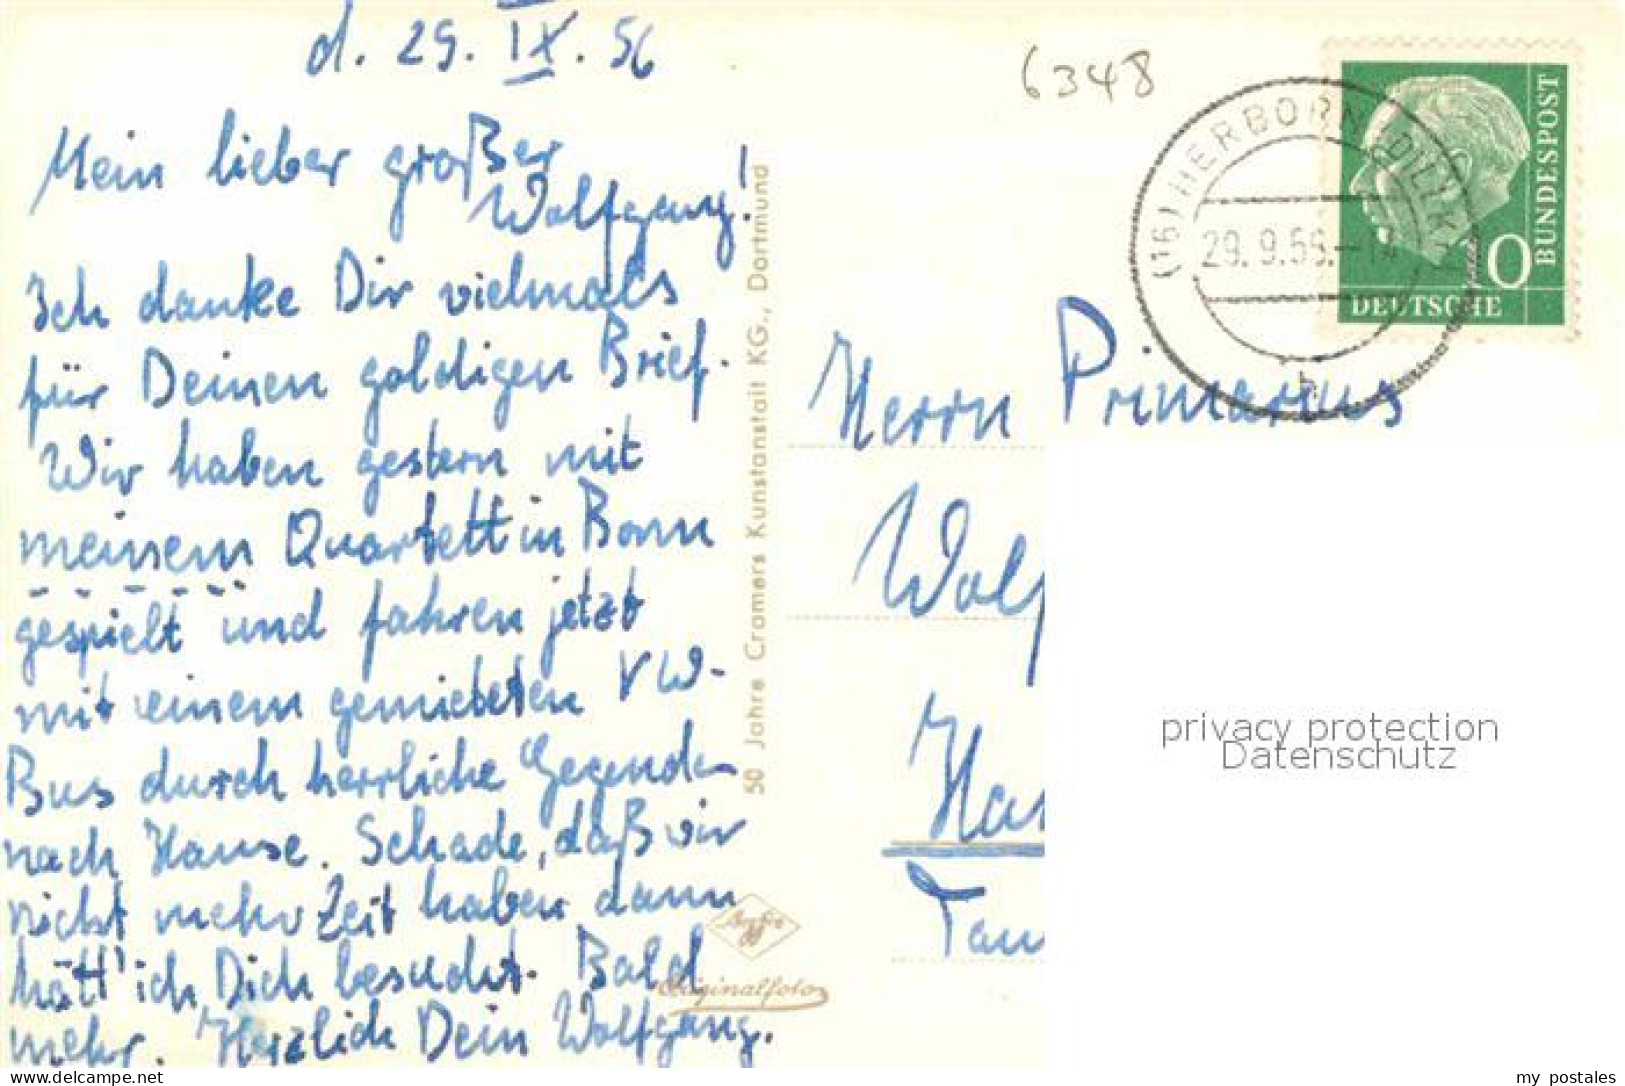 d. 29. IX. 56
Mein lieber großer
Wolfgang!
Ich danke Dir vielmals
für Deinen goldigen Brief.
Wir haben gestern mit
meinem Quartett in Bonn
gespielt und fahren jetzt
mit einem gemieteten VW-
Bus durch herrliche Gegenden
nach Hause. Schade, daß wir
nicht mehr Zeit haben dann
hätt' ich Dich besucht. Bald
mehr. Herzlich Dein Wolfgang.
50 Jahre Cramers Kunstanstalt KG., Dortmund
Agfa
Originalfoto
6348
(16) HERBORN (DILLKR
29.9.56.-
b
BUNDESPOST
10
DEUTSCHE
Herrn Primarius
Wolf
Hau
Tau
privacy protection
Datenschutz
my postales